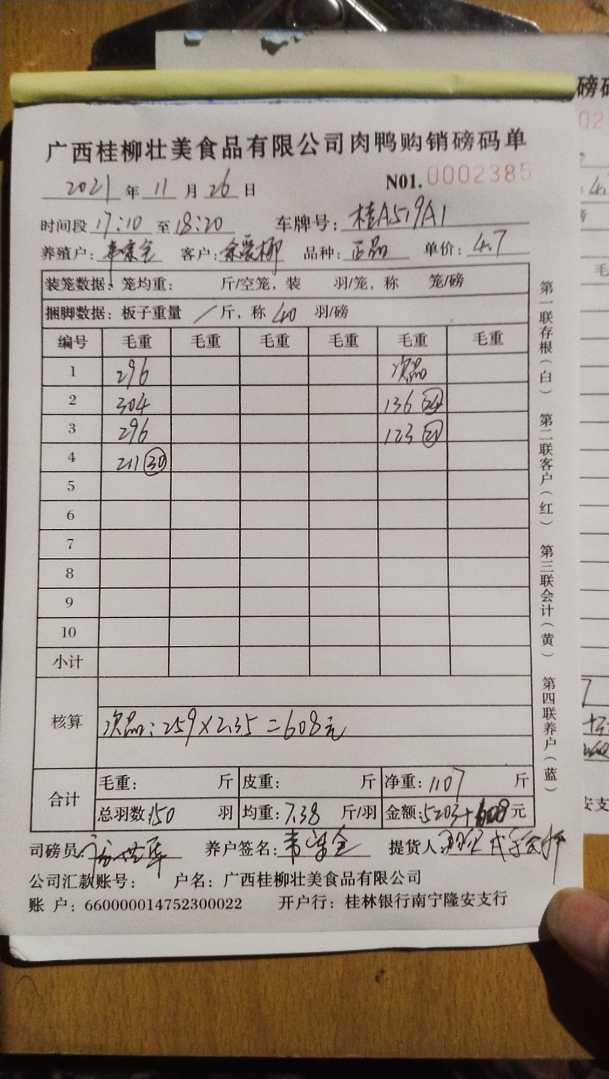 广西桂柳壮美食品有限公司肉鸭购销磅码单
2021 年 11 月 26 日 N01. 0002385
时间段 17:10 至 18:20 车牌号: 桂A519A1
养殖户: 客户: 品种: 正品 单价: 4.7
装笼数据: 笼均重: 斤/空笼, 装 羽/笼, 称 笼/磅
捆脚数据: 板子重量 / 斤, 称 40 羽/磅
编号 毛重 毛重 毛重 毛重 毛重 毛重
1 296 次品
2 304 136 24
3 296 123 21
4 211 30
5
6
7
8
9
10
小计
核算 次品: 259×2.35=608元
合计 毛重: 斤 皮重: 斤 净重: 1107 斤
总羽数: 150 羽 均重: 7.38 斤/羽 金额: 5203+608 元
司磅员 养户签名: 提货人
公司汇款账号: 户名: 广西桂柳壮美食品有限公司
账 户: 660000014752300022 开户行: 桂林银行南宁隆安支行
第一联存根(白) 第二联客户(红) 第三联会计(黄) 第四联养户(蓝)